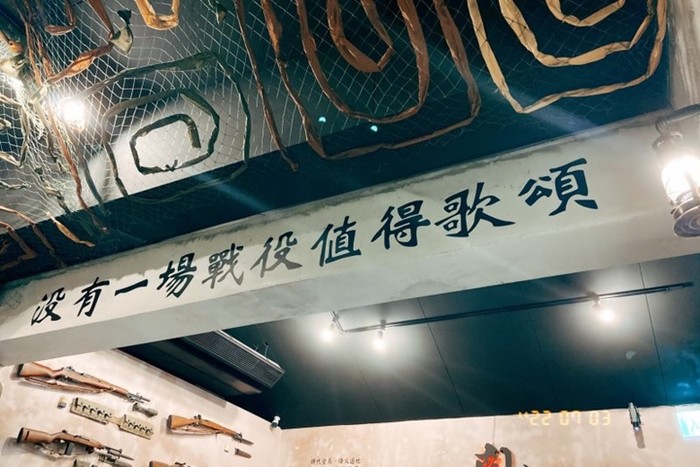 沒有一場戰役值得歌頌
'22 07 03